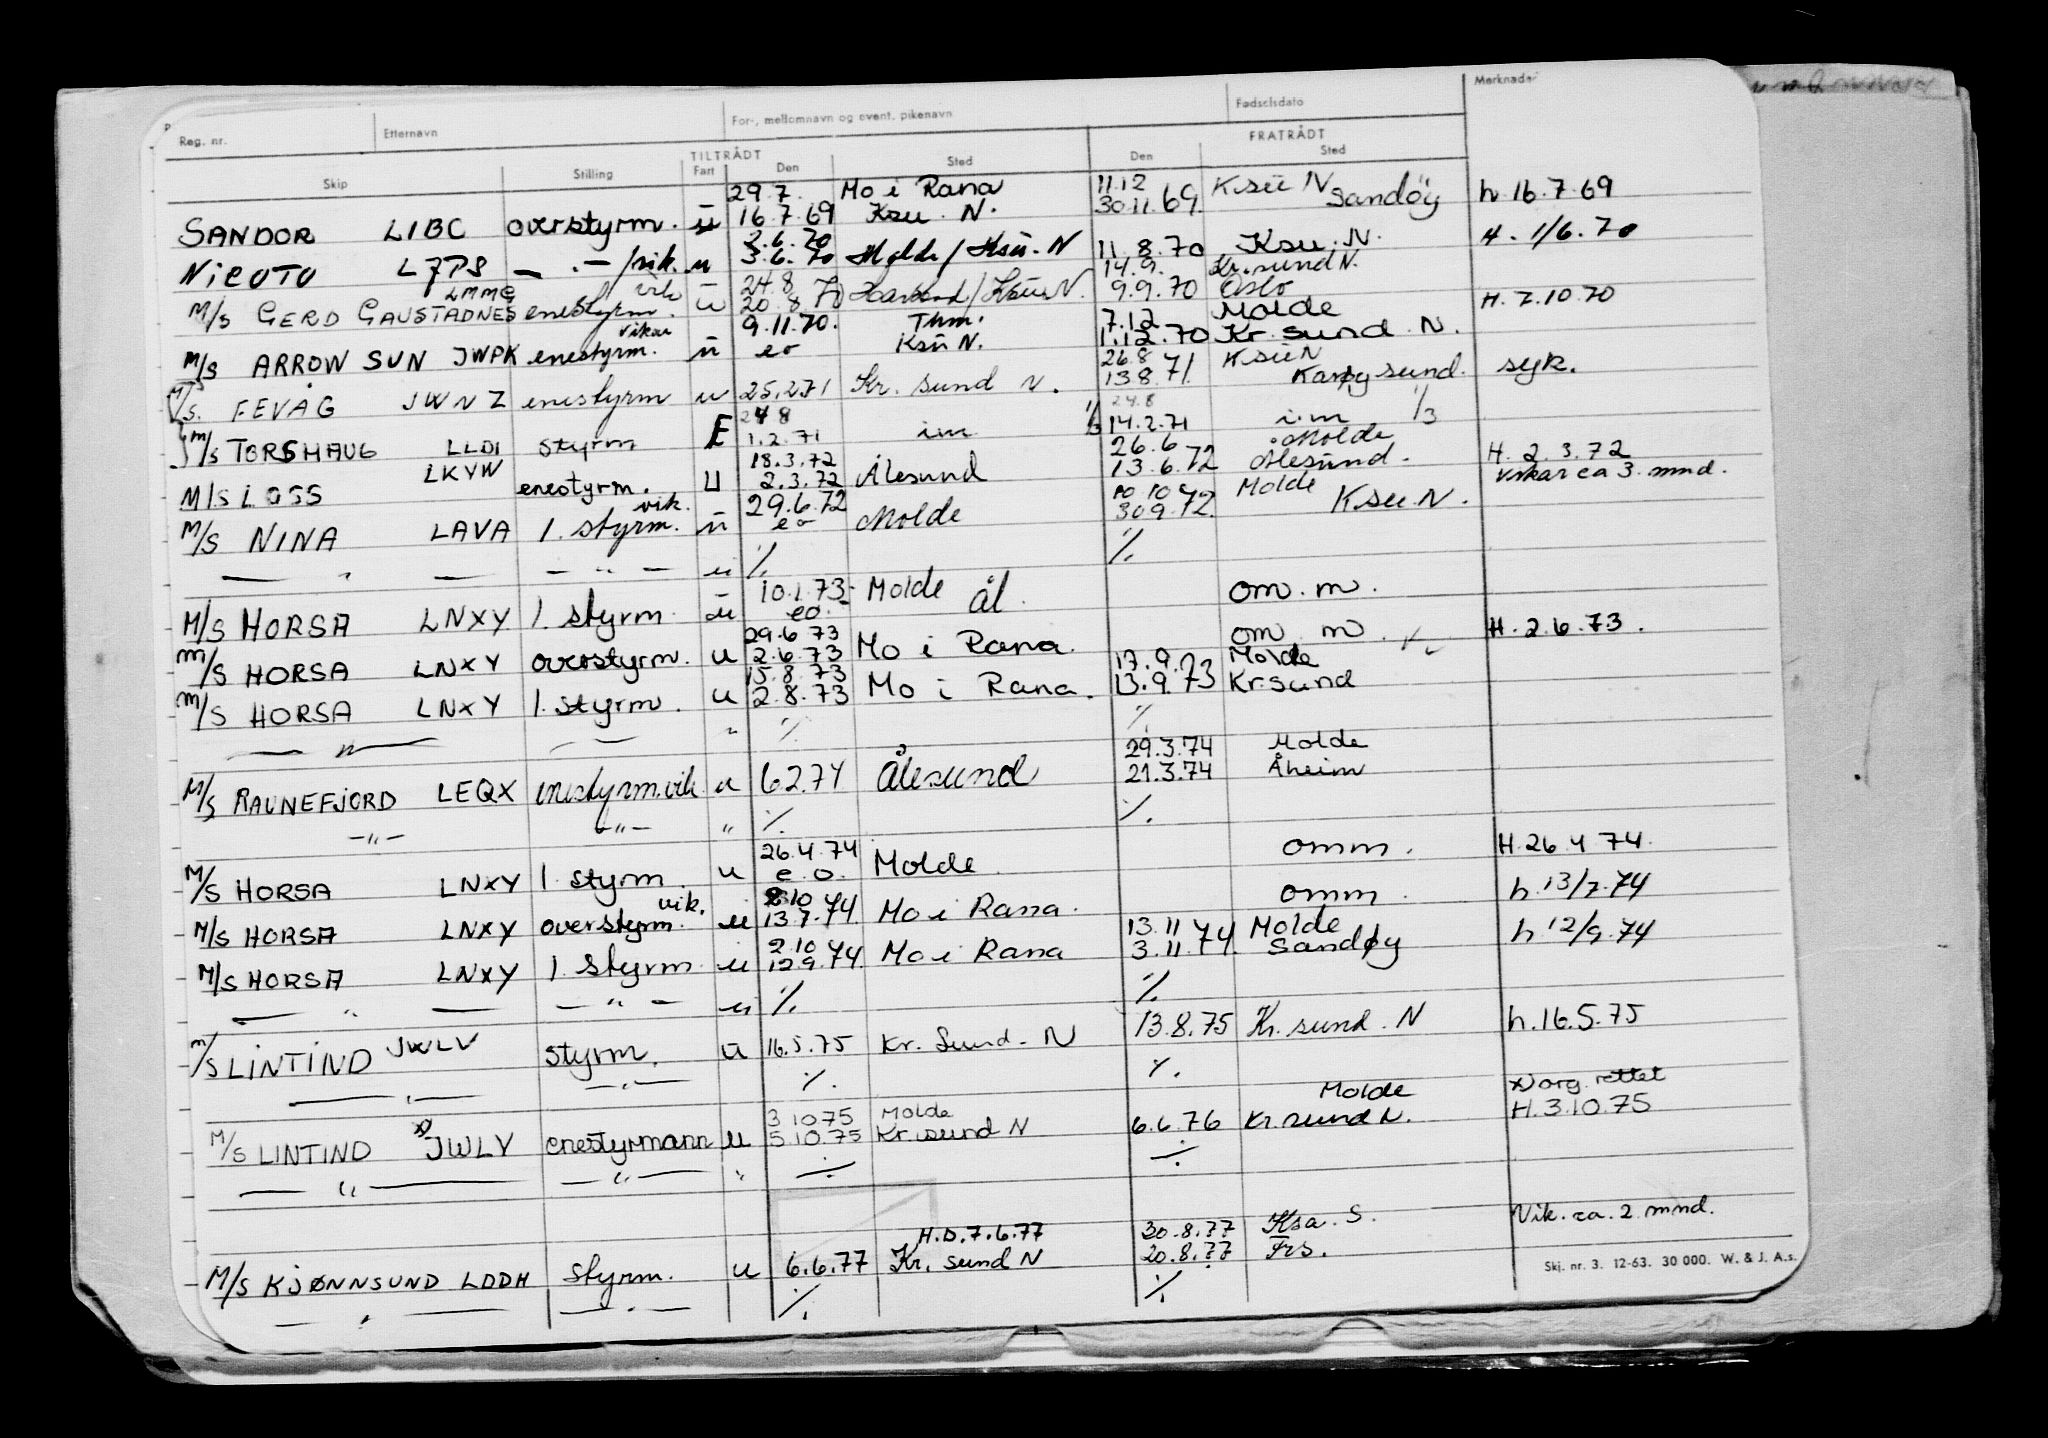 Merknader
Reg. nr. Etternavn For-, mellomnavn og event. pikenavn Fødselsdato
TILTRÅDT FRATRÅDT
Skip Stilling Fart Den Sted Den Sted
29.7. Mo i Rana 11.12 Ksu N
SANDOR LIBC overstyrm. u 16.7.69 Ksu. N. 30.11.69 Sandøy h. 16.7.69
2.6.70
NICOTO /vik. u 3.6.70 Molde/Ksu. N 11.8.70 Ksu. N. H. 1/6.70
LMMG vik 24.8 14.9. Kr.sund N.
M/S GERD GAUSTADNES enestyrm. u 20.8.70 /Ksu N. 9.9.70 Oslo
vikar 9.11.70. Thm. 7.12 Molde H. 7.10.70
M/S ARROW SUN JWPK enestyrm. u eo Ksu N. 1.12.70 Kr.sund. N.
26.8 Ksu N
M/S. FEVÅG JWNZ enestyrm u 25.2.71 Kr. sund N. 13.8.71. sund. syk.
24 8 24.8
M/S TORSHAUG LLDI styrm E 1.2.71 i.m 1/3 14.2.71 i.m 1/3
LKYW 18.3.72 26.6 Molde H. 2.3.72
M/S LOSS enestyrm. U 2.3.72 Ålesund 13.6.72 Ålesund. vikar ca 3. mnd.
vik. 29.6.72 10.10 Molde
M/S NINA LAVA 1. styrm. u eo Molde 30.9.72. Ksu N.
— " — — " — u ./. ./.
10.1.73 Molde
M/S HORSA LNXY 1. styrm. u eo. Ål. om. m.
29.6.73
M/S HORSA LNXY overstyrm. u 2.6.73 Mo i Rana. om m. H. 2.6.73.
15.8.73 17.9. Molde
M/S HORSA LNXY 1. styrm. u 2.8.73 Mo i Rana. 13.9.73 Kr.sund
— " — — " ./. ./.
29.3.74 Molde
M/S RAUNEFJORD LEQX enestyrm.vik u 6.2.74 Ålesund 21.3.74 Åheim
—"— —"— " ./. ./.
26.4.74
M/S HORSA LNXY 1 styrm. u e.o. Molde omm. H. 26.4.74.
vik. 10
M/S HORSA LNXY overstyrm. u 13.7.74. Mo i Rana. omm. h. 13/7.74
2.10 13.11 Molde
M/S HORSA LNXY 1. styrm. u 12.9.74. Mo i Rana 3.11.74. Sandøy h 12/9.74
— " — — " — u ./. ./.
M/S LINTIND JWLV styrm. u 16.5.75 Kr. Sund. N 13.8.75 Kr. sund. N h. 16.5.75
— " — — " — ./. ./.
3 10 75 Molde Molde x) org. rettet
M/S LINTIND x) JWLY enestyrmann u 5.10.75 Kr.sund N 6.6.76 Kr.sund N. H. 3.10.75
— " — — " — " ./. ./.
H.D. 7.6.77 30.8.77 Ksa. S. Vik. ca. 2 mnd.
M/S KJØNNSUND LDDH styrm. u 6.6.77 Kr. sund N 20.8.77 Frs.
— " — — " — ./. ./.
Skj. nr. 3. 12-63. 30 000. W. & J. A.s.